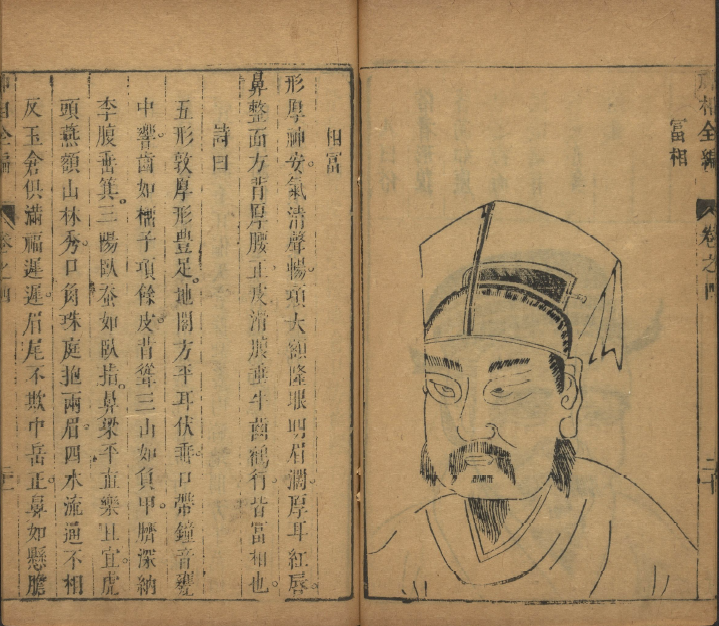 相全編 卷之四 二十
富相
相富
形厚神安氣清聲暢項大額隆眼明眉濶厚耳紅唇
鼻整面方背厚腰正皮滑腹垂牛齒鶴行皆富相也
詩曰
五形敦厚形豊足地閣方平耳伏垂口帶鐘音甕
中響齒如榴子項餘皮背聳三山如負甲臍深納
李腹垂箕三陽臥蚕如臥指鼻梁平直樂且宜虎
頭燕額山林秀口角珠庭抱兩眉四水流通不相
反玉倉俱滿福遲遲眉尾不欺中岳正鼻如懸膽